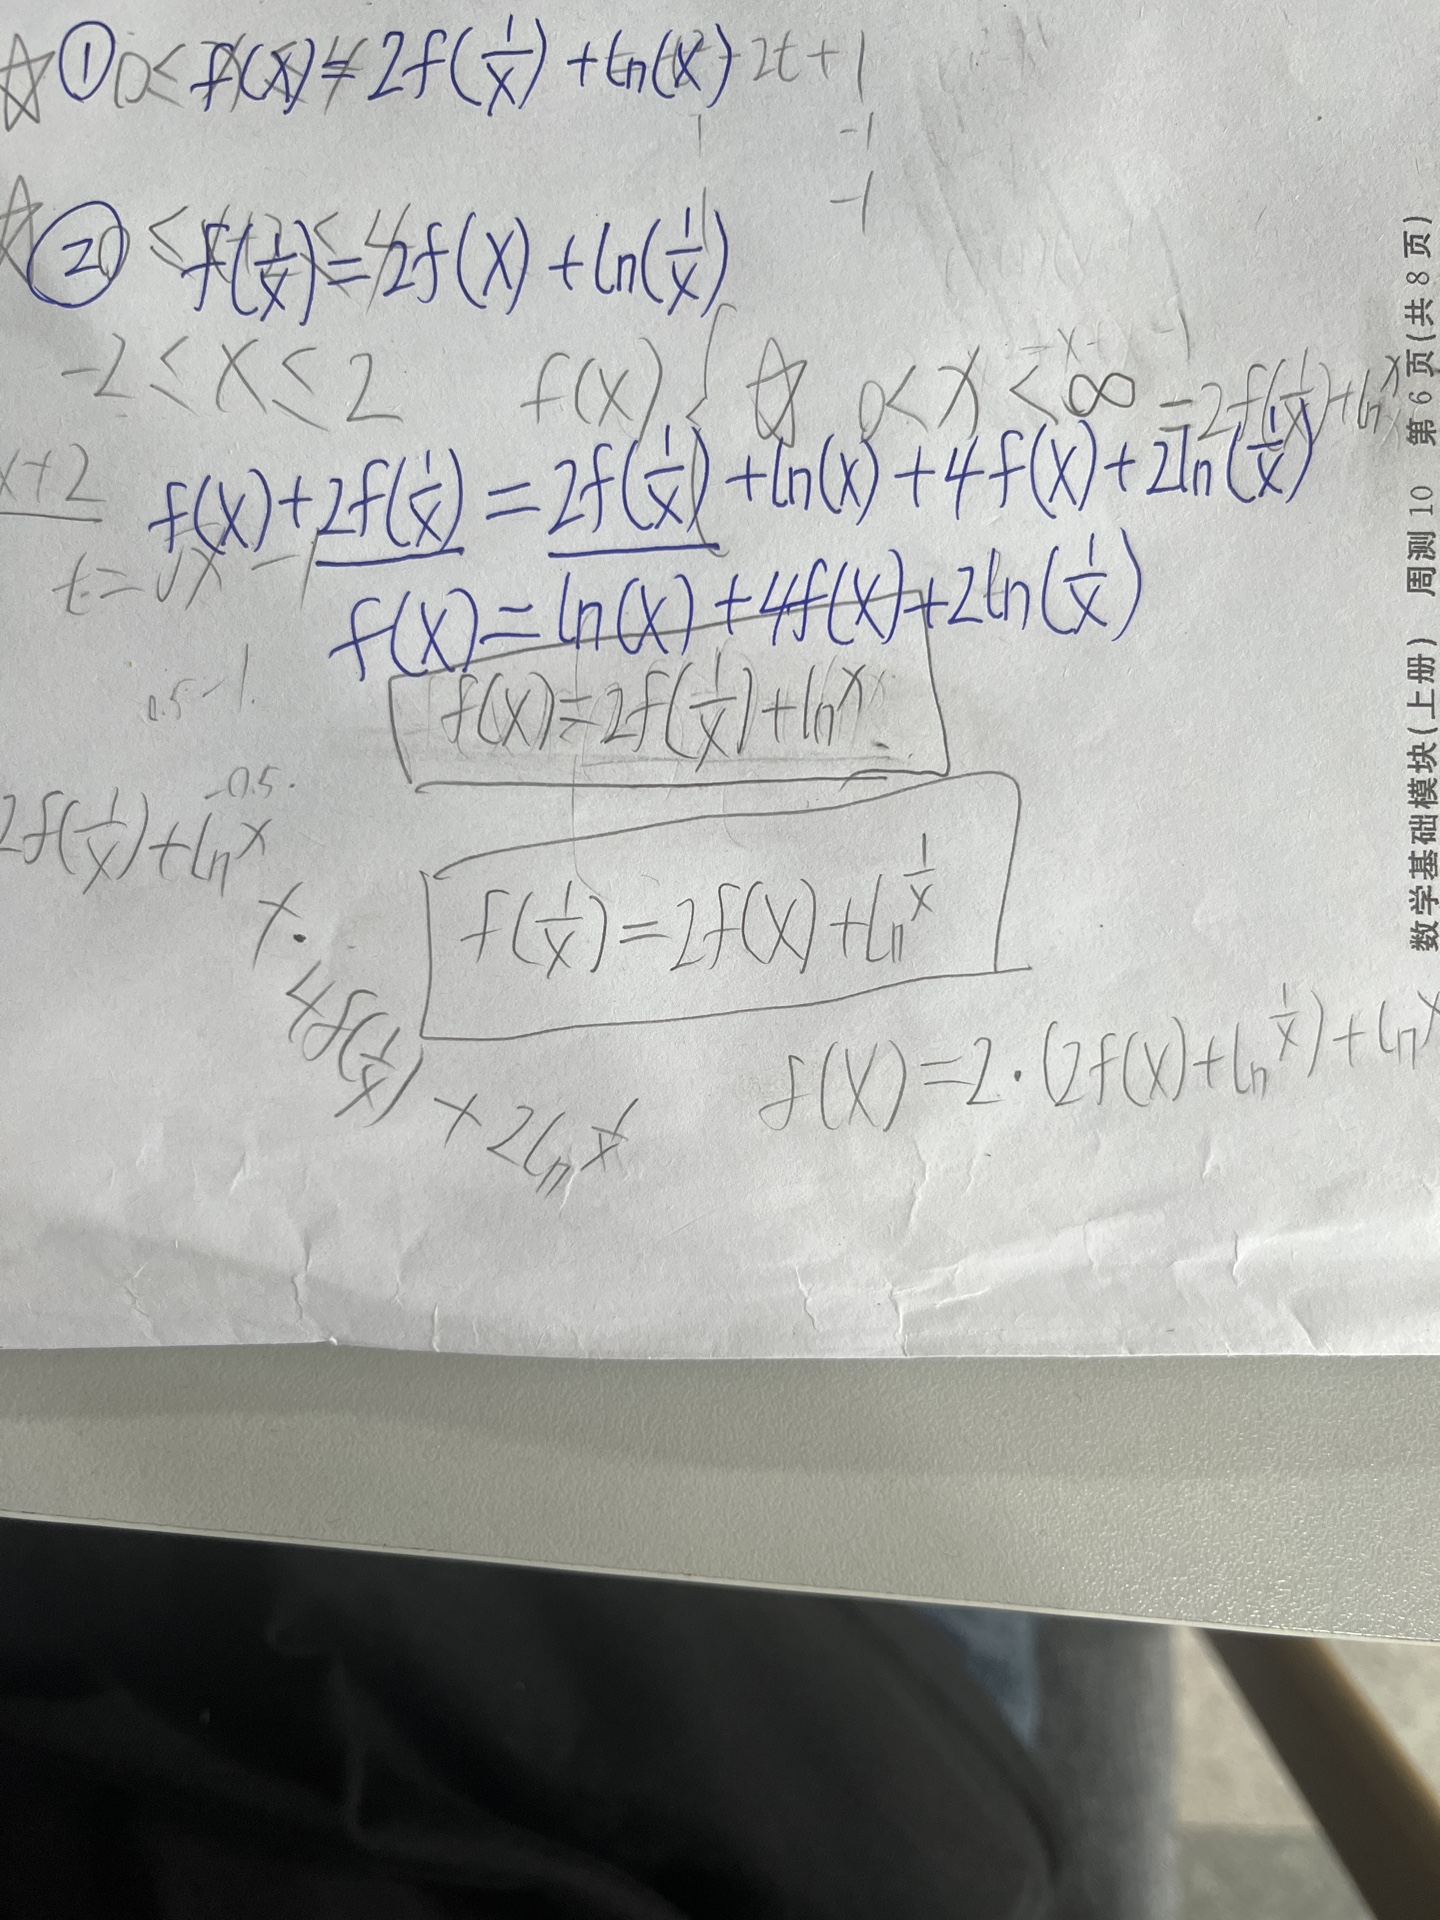 ① f(x)=2f(1/x)+ln(x) -2t+1
-1
-1
② f(1/x)=2f(x)+ln(1/x)
-2≤x≤2 f(x){ ☆ 0<x<∞ =2f(1/x)+ln^x
x+2 f(x)+2f(1/x)=2f(1/x)+ln(x)+4f(x)+2ln(1/x)
f(x)=ln(x)+4f(x)+2ln(1/x)
0.5-1.
f(x)=2f(1/x)+ln^x
-0.5.
2f(1/x)+ln^x
f(1/x)=2f(x)+ln^(1/x)
4f(1/x)+2ln^(1/x)
f(x)=2·(2f(x)+ln^(1/x))+ln^x
数学基础模块(上册) 周测10 第6页(共8页)